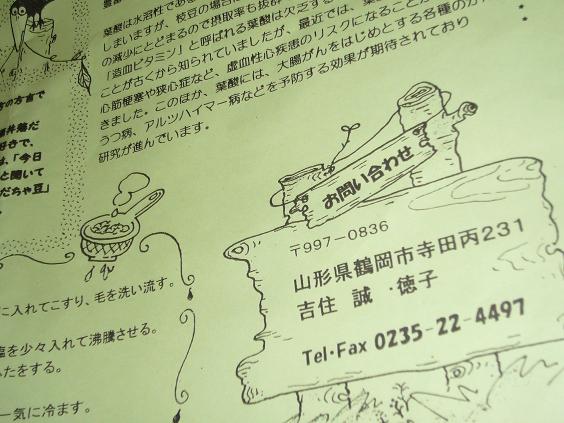 葉酸は水溶性であ
しまいますが、枝豆の場合は
の減少にとどまるので摂取率も抜群
「造血ビタミン」と呼ばれる葉酸は欠乏する
ことが古くから知られていましたが、最近では、
心筋梗塞や狭心症など、虚血性心疾患のリスクになることが
きました。このほか、葉酸には、大腸がんをはじめとする各種のが
うつ病、アルツハイマー病などを予防する効果が期待されており
研究が進んでいます。
方の方言で
井筒だ
好きで、
は、「今日
と聞いて
だちゃ豆」
に入れてこすり、毛を洗い流す。
塩を少々入れて沸騰させる。
ふたをする。
一気に冷ます。
お問い合わせ
〒997-0836
山形県鶴岡市寺田丙231
吉住 誠・徳子
Tel・Fax 0235-22-4497